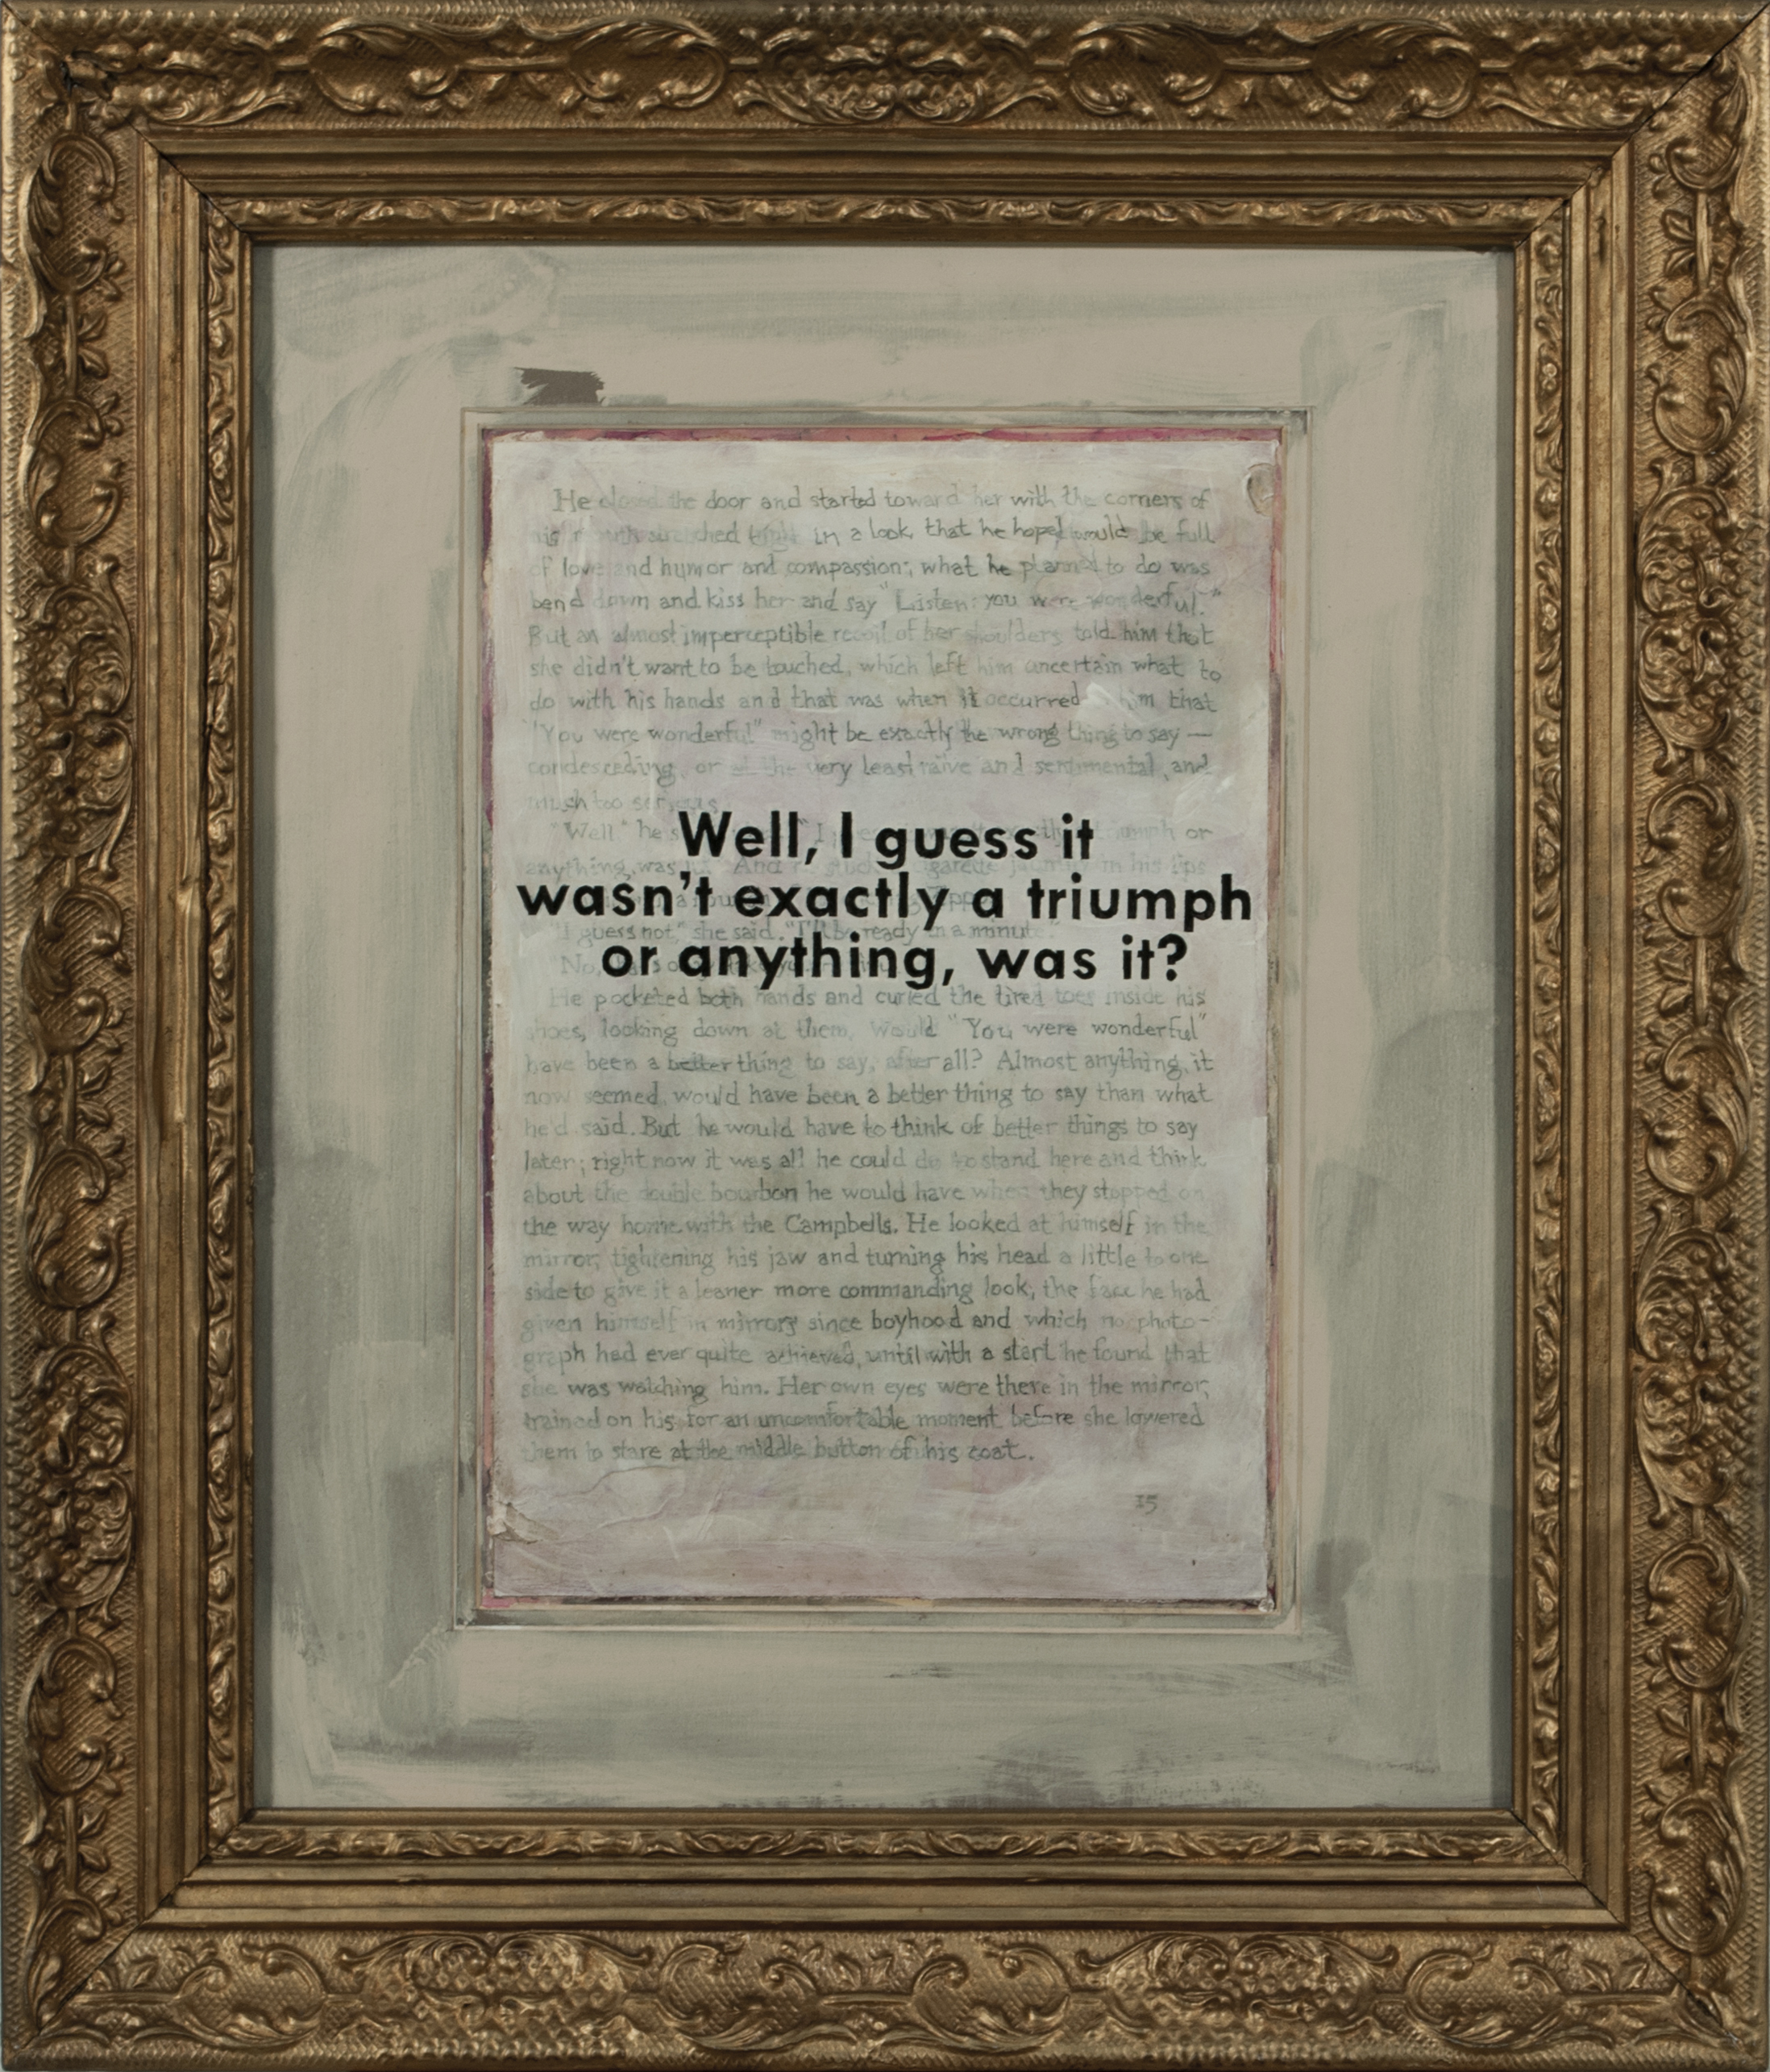 He closed the door and started toward her with the corners of
his mouth stretched tight in a look, that he hoped would be full
of love and humor and compassion; what he planned to do was
bend down and kiss her and say "Listen: you were wonderful."
But an almost imperceptible recoil of her shoulders told him that
she didn't want to be touched, which left him uncertain what to
do with his hands and that was when it occurred him that
"You were wonderful" might be exactly the wrong thing to say —
condesceding, or at the very least naive and sentimental, and
much too serious
"Well" he
Well, I guess it
triumph or
anything, was And his lips
wasn't exactly a triumph
"I guess not," she said. "I'll be ready in a minute."
or anything, was it?
"No,
He pocketed both hands and curled the tired toes inside his
shoes, looking down at them. Would "You were wonderful"
have been a better thing to say, after all? Almost anything, it
now seemed, would have been a better thing to say than what
he'd said. But he would have to think of better things to say
later; right now it was all he could do to stand here and think
about the double bourbon he would have when they stopped on
the way home with the Campbells. He looked at himself in the
mirror, tightening his jaw and turning his head a little to one
side to give it a leaner more commanding look, the face he had
given himself in mirrors since boyhood and which no photo-
graph had ever quite achieved, until with a start he found that
she was watching him. Her own eyes were there in the mirror,
trained on his for an uncomfortable moment before she lowered
them to stare at the middle button of his coat.
15